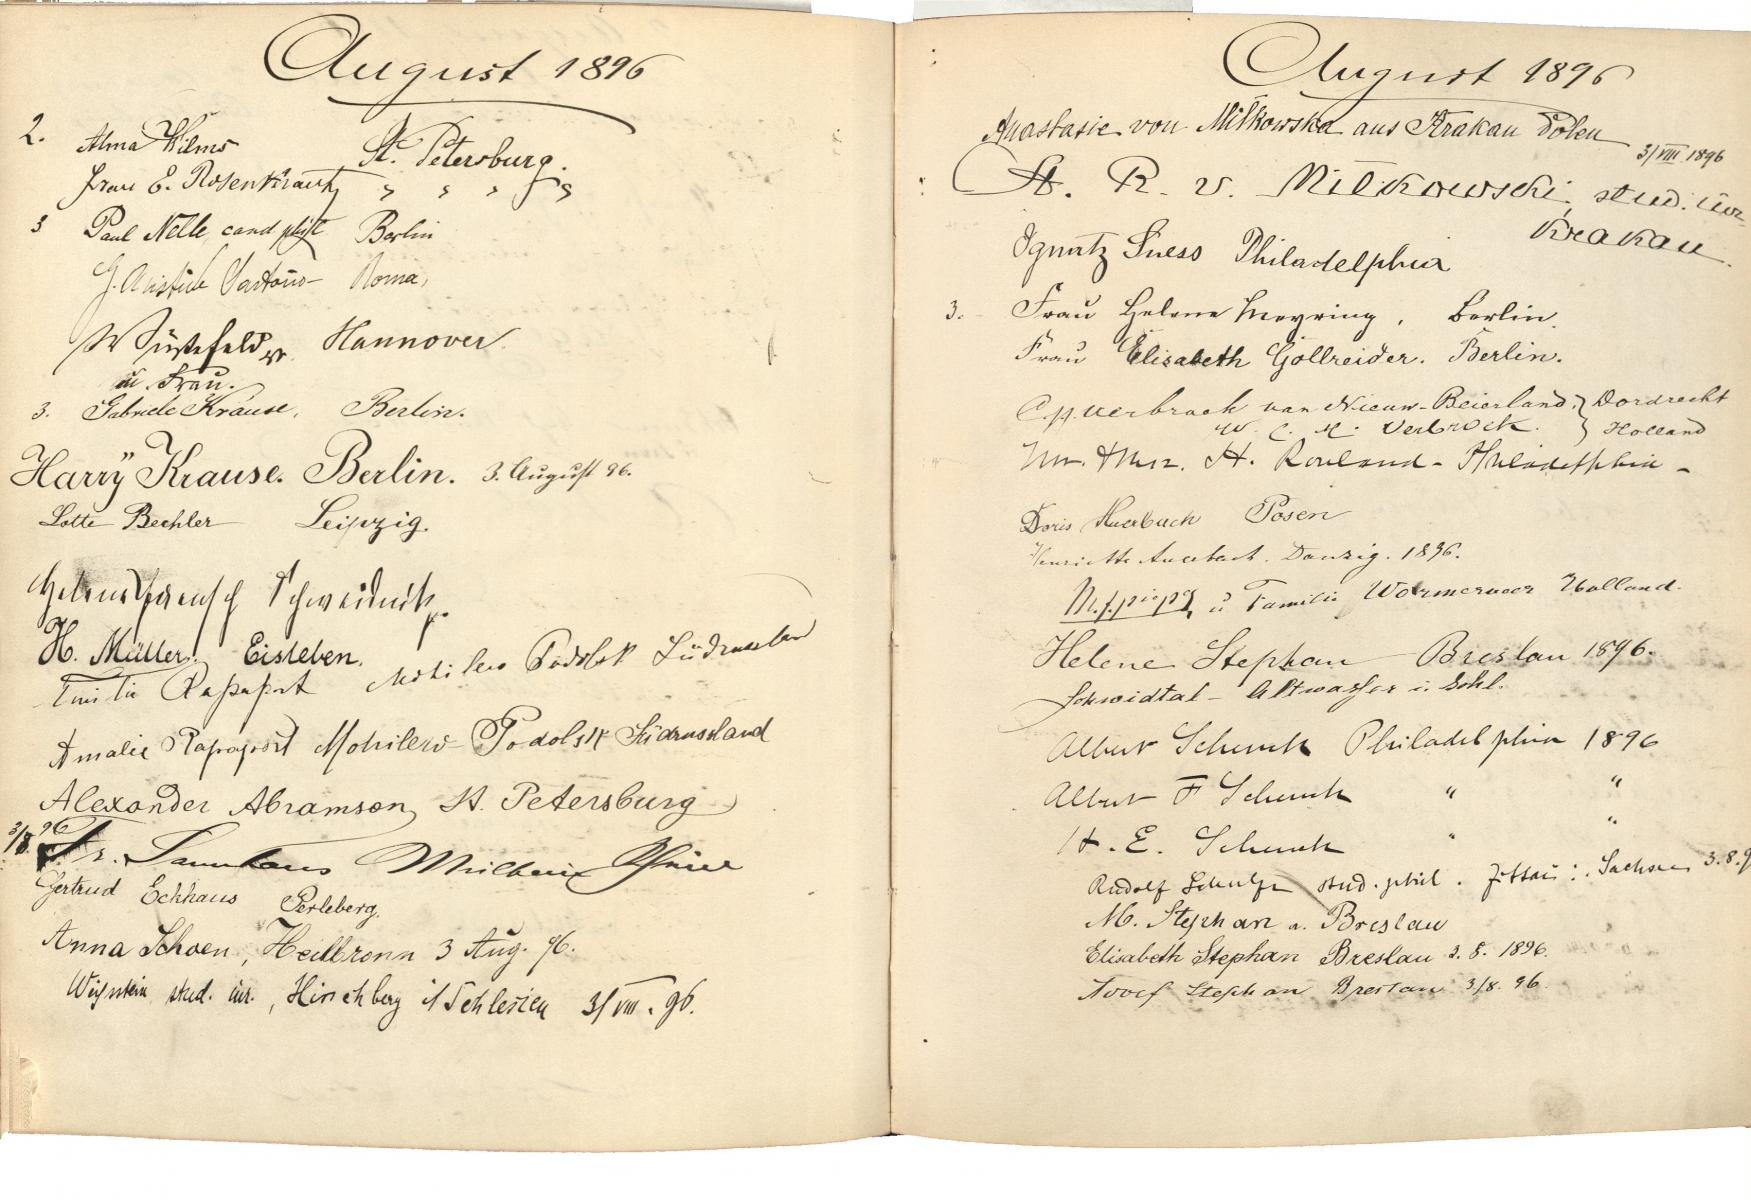 August 1896
2. Alma Wilms St. Petersburg.
Frau E. Rosenkrantz " " " "
3 Paul Nelle, cand phil Berlin
G. Roma,
Wüstefeld Hannover.
u. Frau.
3. Gabriele Krause, Berlin.
Harry Krause. Berlin. 3. August 96.
Lotte Bechler Leipzig.
Schweidnitz.
H. Müller. Eisleben.
Rapaport Mohilew Podolsk Südrussland
Amalie Rapaport Mohilew Podolsk Südrussland
Alexander Abramson, St. Petersburg
3/8. 96 Fr.
Gertrud Eckhaus Perleberg.
Anna Schoen, Heilbronn 3 Aug. 96.
stud. iur., Hirschberg i/Schlesien 3/VIII. 96.
August 1896
Anastasie von Milkowska aus Krakau Polen
3/VIII 1896
St. R. v. Milkowski, stud. iur
Krakau.
Ignatz Suess Philadelphia
3. Frau Helene Meyring, Berlin.
Frau Elisabeth Gollreider. Berlin.
van Nieuw-Beierland, } Dordrecht
W. C. M. Verbrock. } Holland
Mr. & Mrs. H. Rowland - Philadelphia -
Doris Auerbach Posen
Henriette Auerbach. Danzig. 1896.
u Familie Wormerveer Holland.
Helene Stephan Breslau 1896.
Schwidtal - Altwasser i. Schl.
Albert Schenck Philadelphia 1896
Albert F Schenck " "
H. E. Schenck " "
Rudolf Schulze stud. phil. Zittau i. Sachsen 3.8.9
M. Stephan a. Breslau
Elisabeth Stephan Breslau 3. 8. 1896.
Adolf Stephan Breslau 3/8. 96.